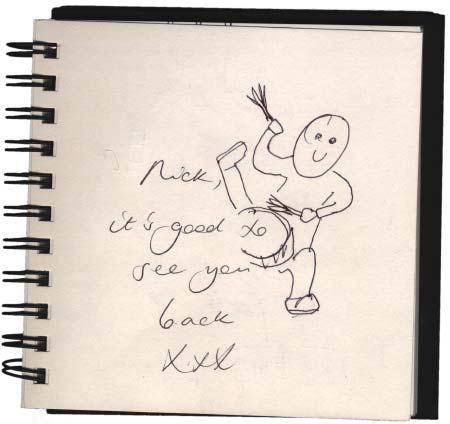 Nick,
it's good to
see you
back
XXX